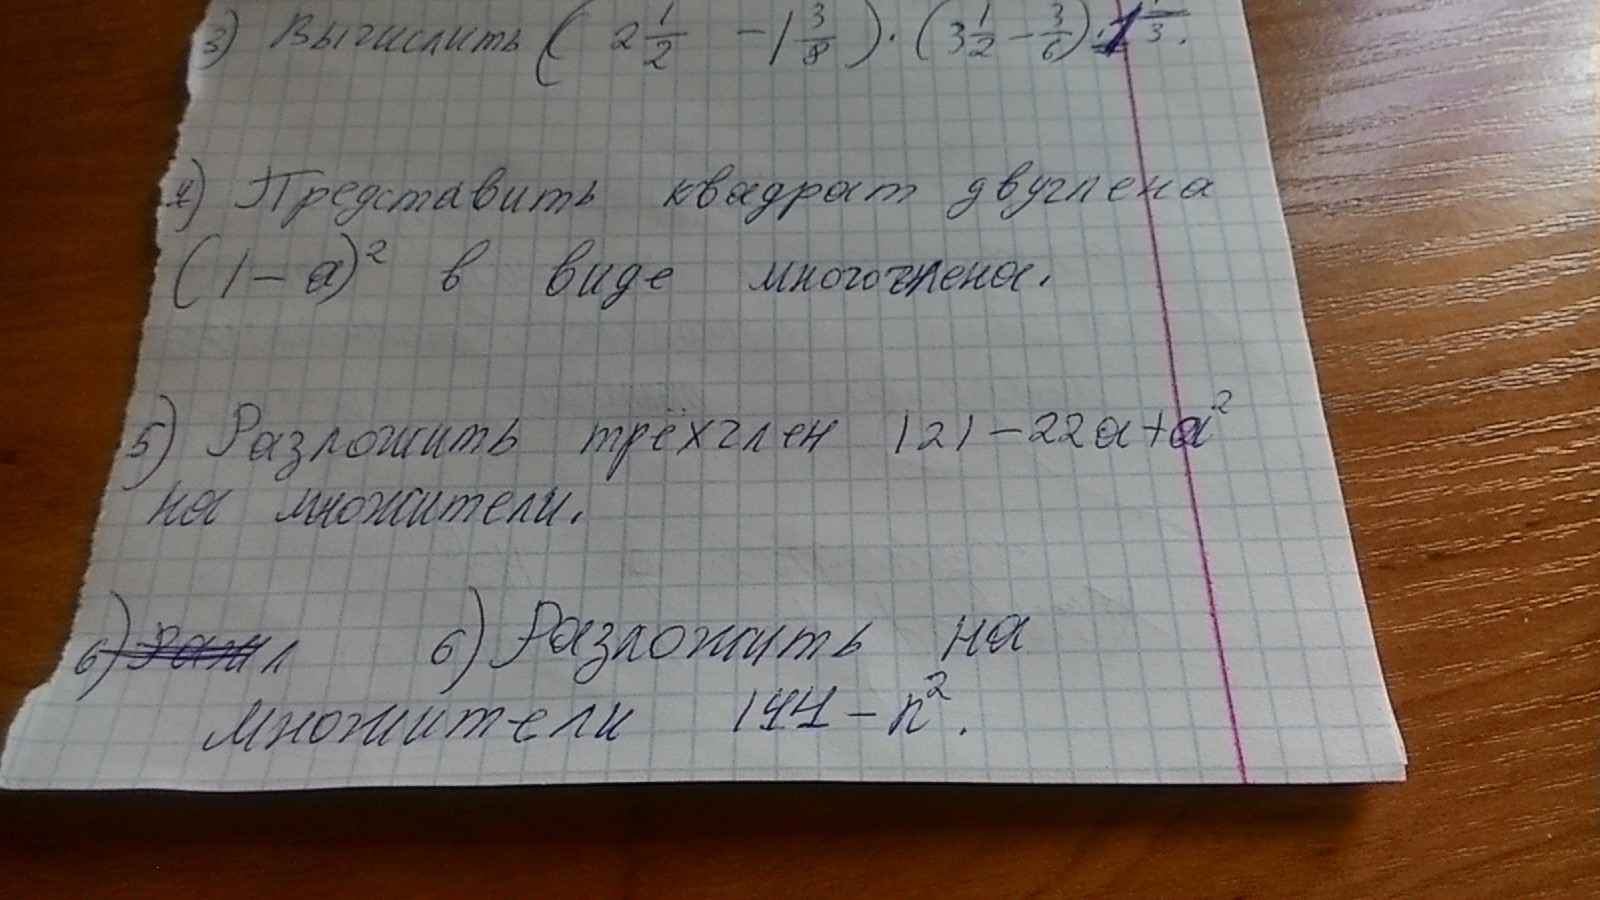 3) Вычислить (2 1/2 - 1 3/8) · (3 1/2 - 3/6) : 1 1/3.
4) Представить квадрат двучлена
(1 - a)² в виде многочлена.
5) Разложить трёхчлен 121 - 22a + a²
на множители.
6) Разл 6) Разложить на
множители 144 - n².